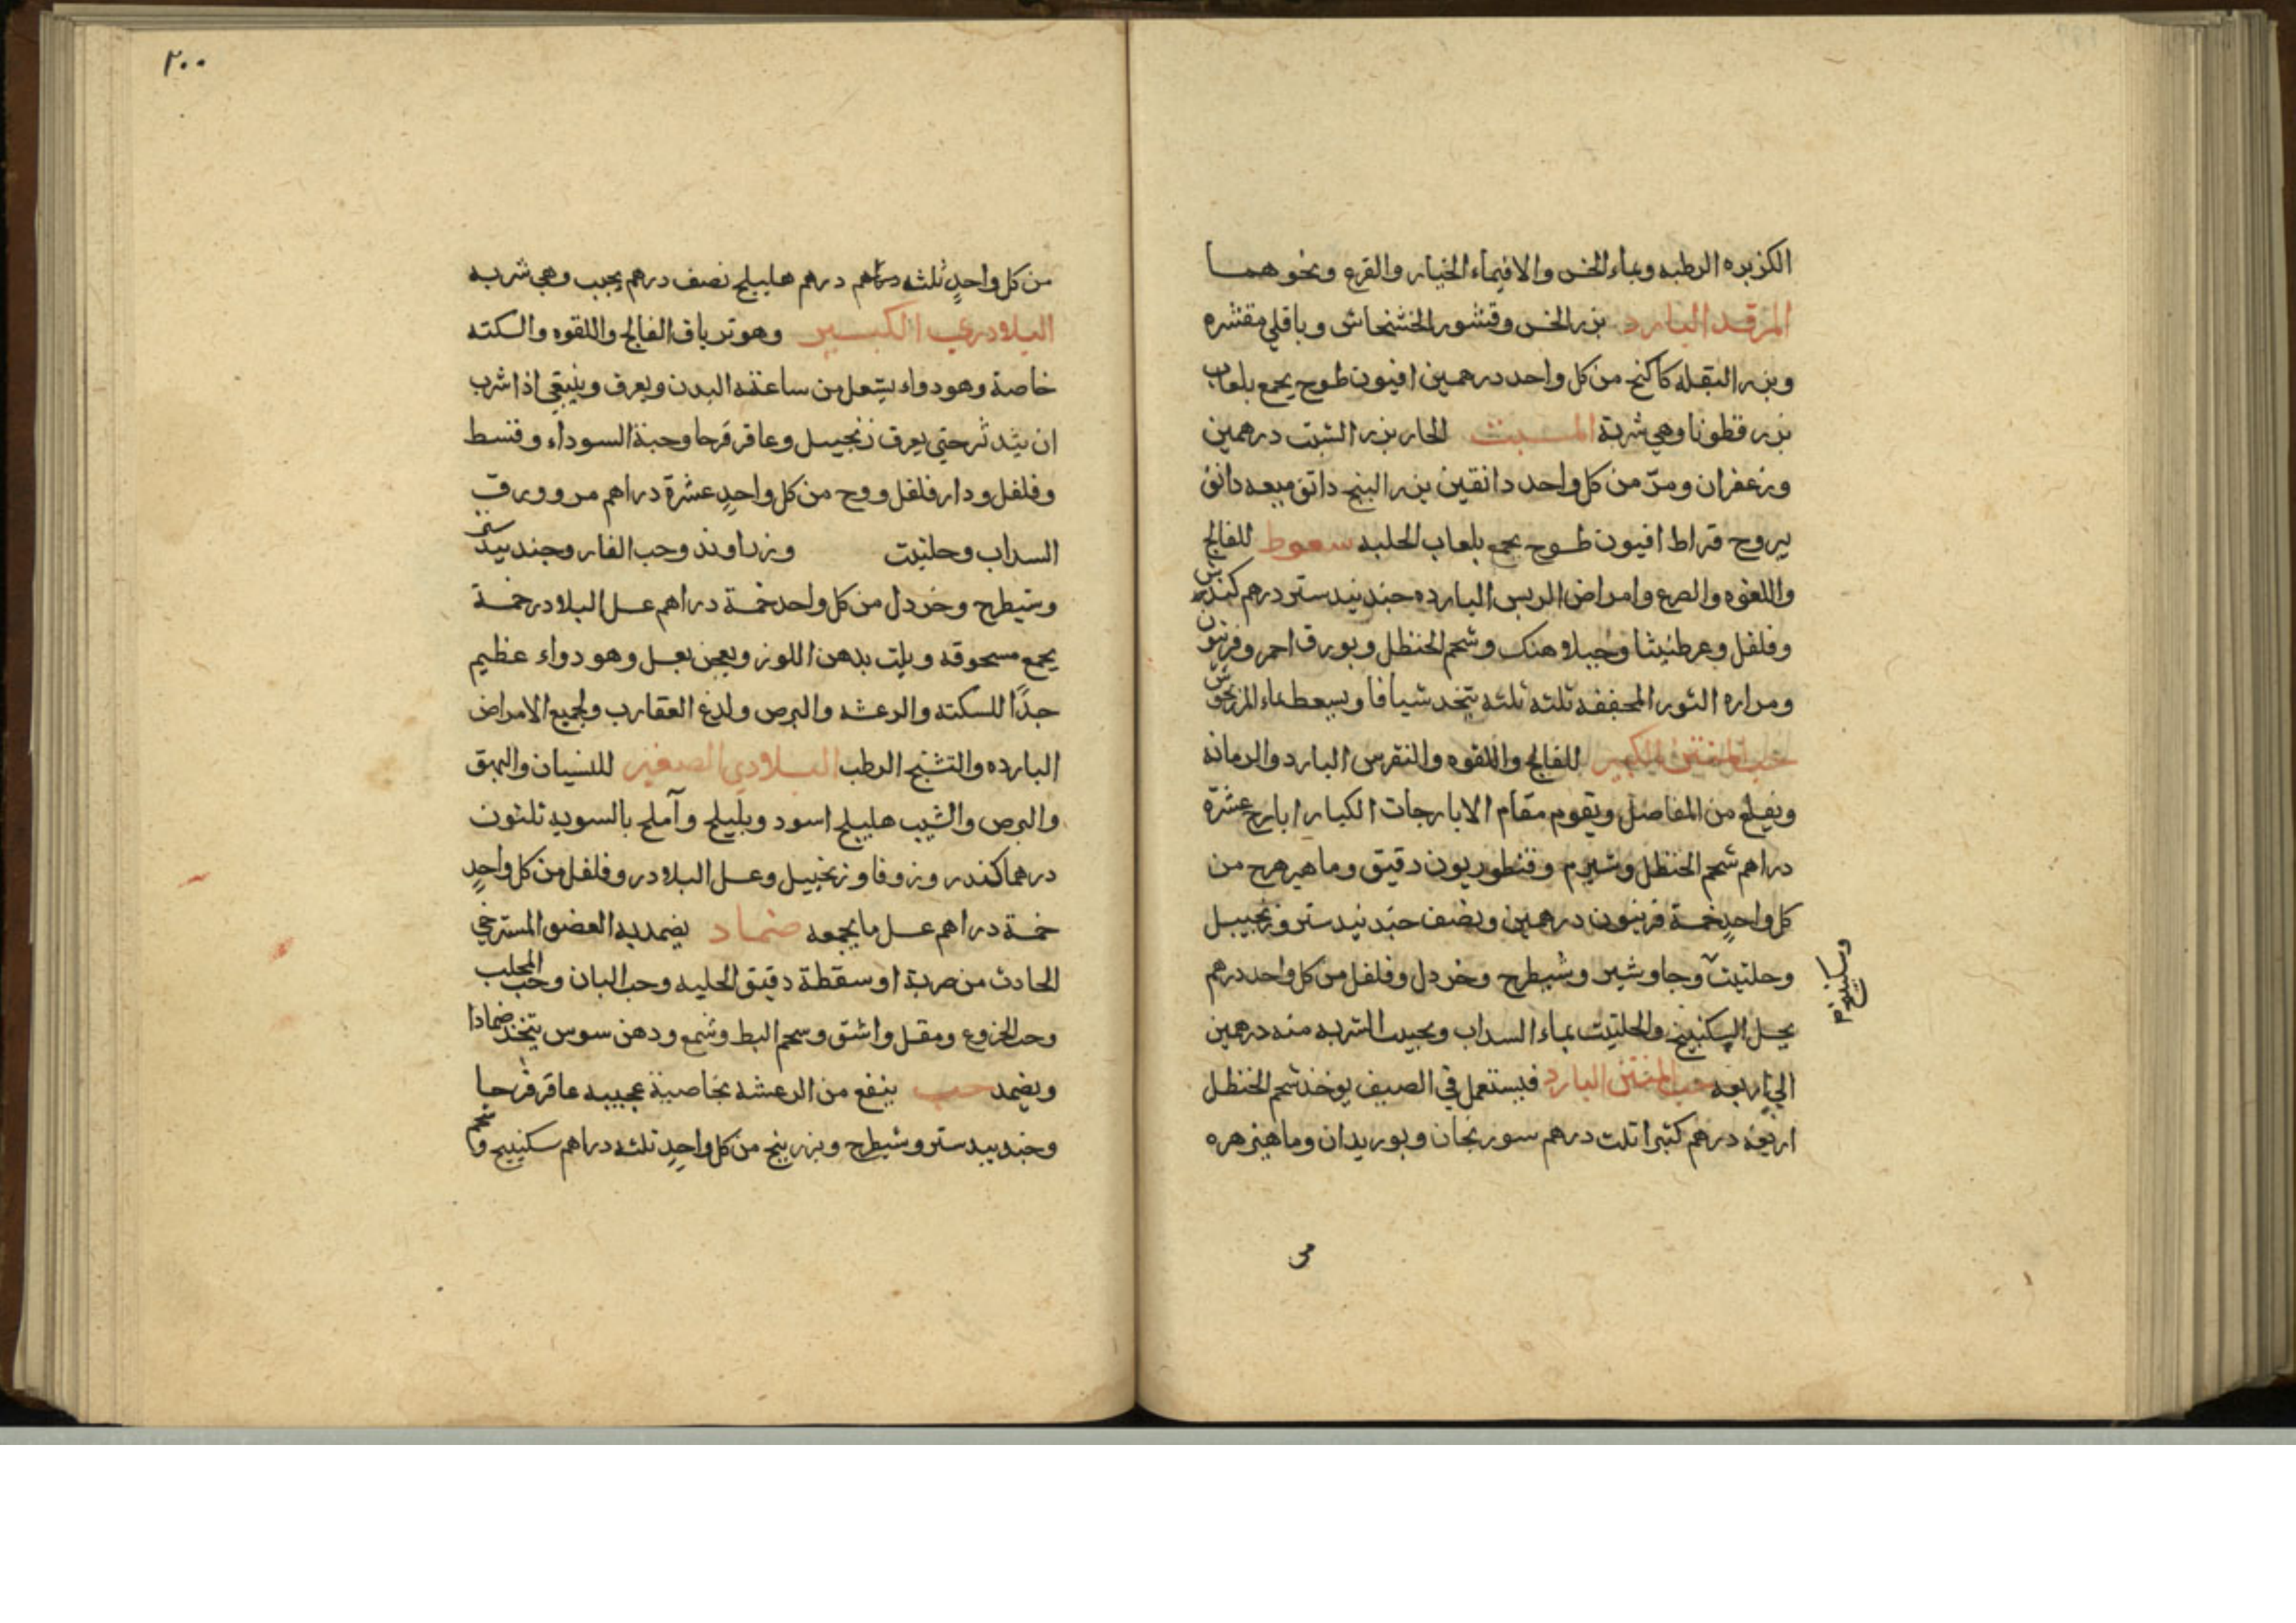 الكزبره الرطبه وبماء الخس والافيماء الخيار والقرع ونحوهما
المرقد البارد بزر الخس وقشور الخشخاش وباقلي مقشره
وبزر البقله كاكنج من كل واحد درهمين افيون طسوج يجمع بلعاب
بزر قطونا وهي شربة المسبت الحار بزر الشبت درهمين
وزعفران ومرّ من كل واحد دانقين بزر البنج دانق ميعه دانق
يبروح قراط افيون طسوج يجمع بلعاب الحلبه سعوط للفالج
واللقوه والصرع وامراض الريس البارده جندبيدستر درهم كندش
وفلفل وعرطنيثا وجبلاهنك وشحم الحنظل وبورق احمر وفربيون
ومراره الثور المجففه ثلثه ثلثه يتخذ شيافا ويسعط بماء المرزنجوش
حب المنتن الكبير للفالج واللقوه والنقرس البارد والرمانة
ويفلع من المفاصل ويقوم مقام الايارجات الكبار ايارج عشرة
دراهم شحم الحنظل وشبرم وقنطوريون دقيق وماهيزهرج من
كل واحدٍ خمسة فربيون درهمين ونصف جندبيدستر وزنجبيل
وحلتيت وجاوشير وشيطرج وخردل وفلفل من كل واحد درهم
وسكبينج م
يحل السكبينج والحلتيت بماء السداب ويحبب الشربه منه درهمين
الي اربعه حب المنتن البارد فيستعمل في الصيف يوخذ شحم الحنظل
اربعة درهم كثيرا ثلث درهم سورنجان وبوريدان وماهيزهره
٢٠٠
من كل واحدٍ ثلثه دراهم درهم هليلج نصف درهم يحبب وهي شربه
البلادري الكبير وهو ترياق الفالج واللقوه والسكته
خاصة وهو دواء يشعل من ساعته البدن ويعرق وينبغي اذا شرب
ان يتدثر حتي يعرق زنجبيل وعاقرقرحا وحبة السوداء وقسط
وفلفل ودارفلفل ووج من كل واحدٍ عشرة دراهم مر وورق
السداب وحلتيت وزراوند وحب الغار وجندبيدستر
وشيطرج وخردل من كل واحد خمسة دراهم عسل البلادر خمسة
يجمع مسحوقه ويلت بدهن اللوز ويعجن بعسل وهو دواء عظيم
جدًا للسكته والرعشه والبرص ولدغ العقارب ولجميع الامراض
البارده والتشنج الرطب البلادري الصغير للنسيان والبهق
والبرص والشيب هليلج اسود وبليلج وآملج بالسويه ثلثون
درهما كندر وزوفا وزنجبيل وعسل البلادر وفلفل من كل واحدٍ
خمسة دراهم عسل ما يجمعه ضماد يضمد به العضو المسترخي
الحادث من ضربة او سقطة دقيق الحلبه وحب البان وحب المحلب
وحب الخروع ومقل واشق وشحم البط وشمع ودهن سوس يتخذ ضمادا
ويضمد حب ينفع من الرعشه بخاصية عجيبه عاقرقرحا
وجندبيدستر وشيطرج وبزر بنج من كل واحدٍ ثلثه دراهم سكبينج